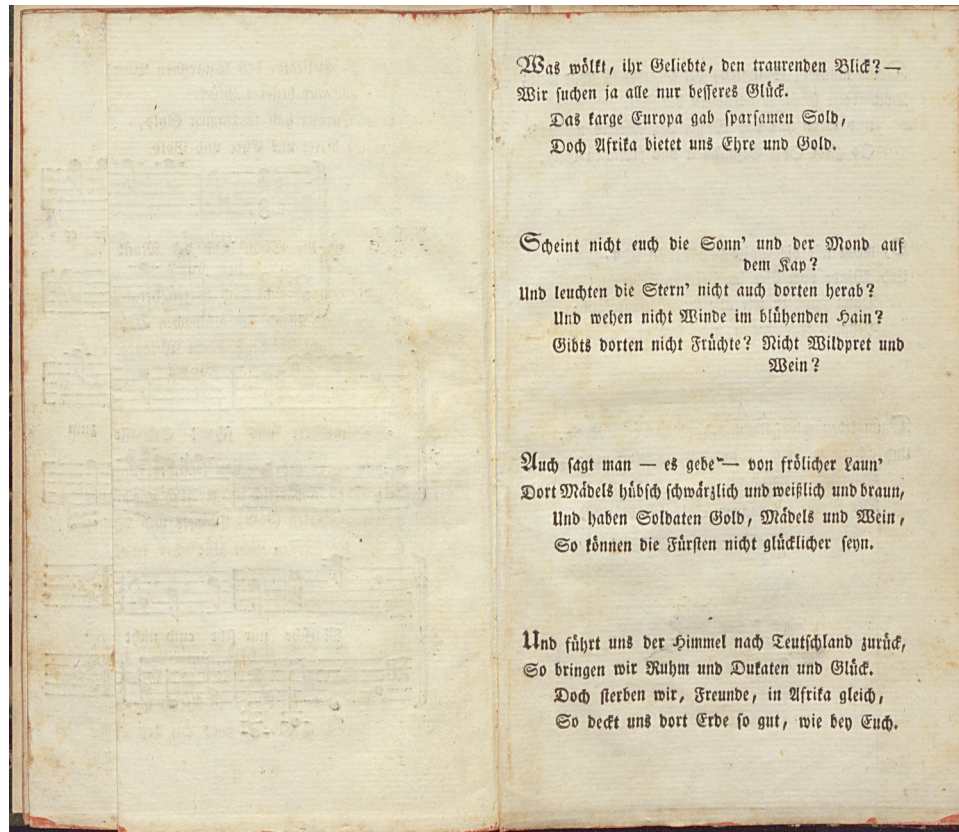 Was wölkt, ihr Geliebte, den traurenden Blick? —
Wir suchen ja alle nur besseres Glück.
Das karge Europa gab sparsamen Sold,
Doch Afrika bietet uns Ehre und Gold.
Scheint nicht euch die Sonn' und der Mond auf
dem Kap?
Und leuchten die Stern' nicht auch dorten herab?
Und wehen nicht Winde im blühenden Hain?
Gibts dorten nicht Früchte? Nicht Wildpret und
Wein?
Auch sagt man — es gebe — von frölicher Laun'
Dort Mädels hübsch schwärzlich und weißlich und braun,
Und haben Soldaten Gold, Mädels und Wein,
So können die Fürsten nicht glücklicher seyn.
Und führt uns der Himmel nach Teutschland zurück,
So bringen wir Ruhm und Dukaten und Glück.
Doch sterben wir, Freunde, in Afrika gleich,
So deckt uns dort Erde so gut, wie bey Euch.